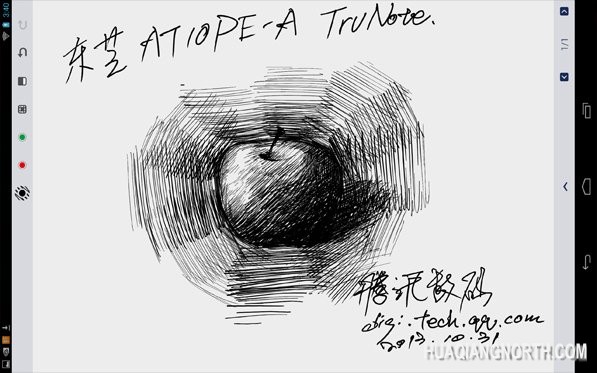 东芝 AT10PE-A TruNote.
腾讯数码
digi.tech.qq.com
2013.10.31
HUAQIANGNORTH.COM
3:40
1/1